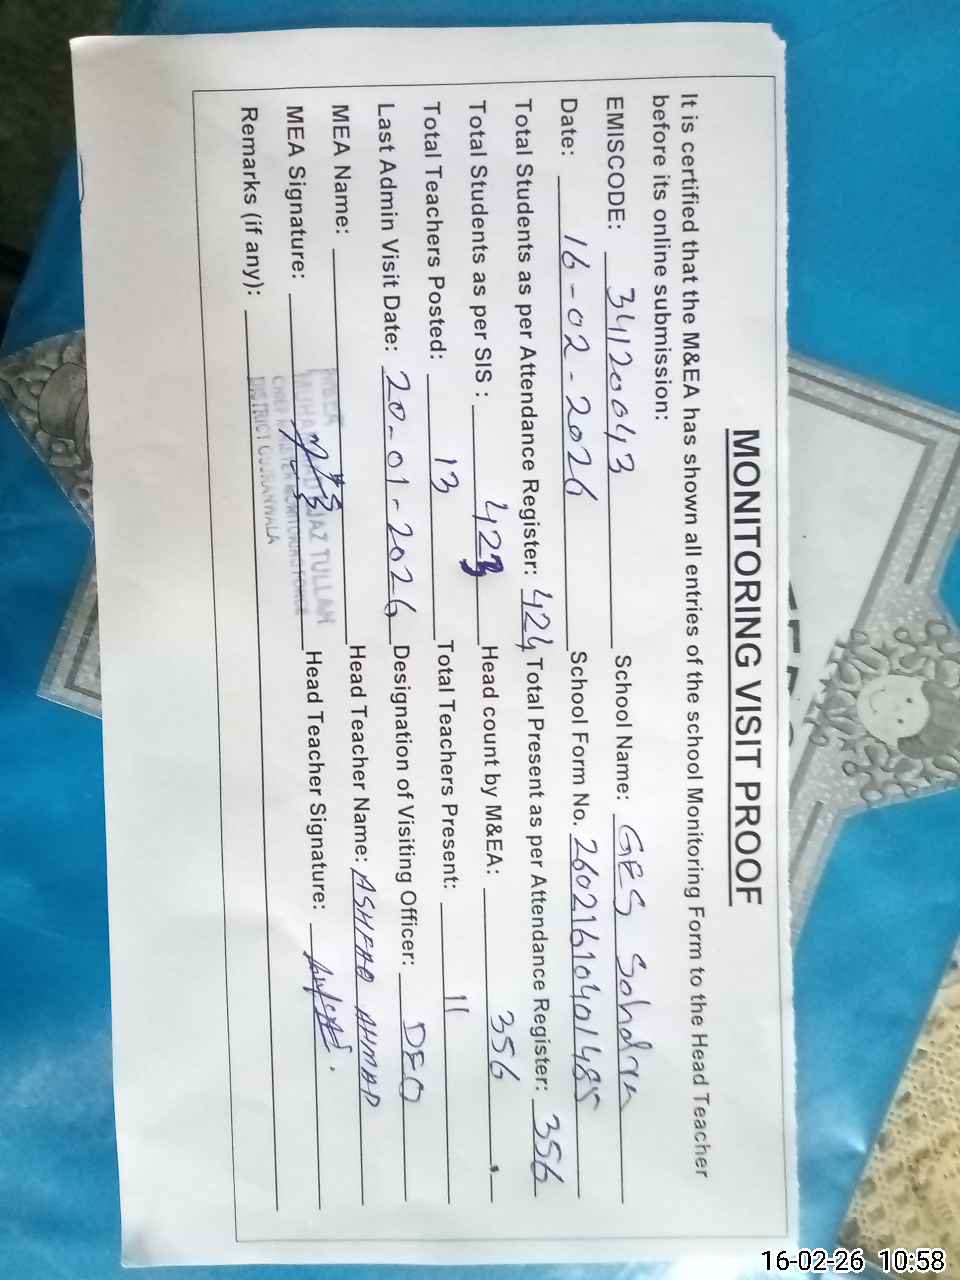 MONITORING VISIT PROOF
It is certified that the M&EA has shown all entries of the school Monitoring Form to the Head Teacher
before its online submission:
EMISCODE: 34120043 School Name: GES Sohdra
Date: 16-02-2026 School Form No. 26021610401485
Total Students as per Attendance Register: 424 Total Present as per Attendance Register: 356
Total Students as per SIS : 423 Head count by M&EA: 356
Total Teachers Posted: 13 Total Teachers Present: 11
Last Admin Visit Date: 20-01-2026 Designation of Visiting Officer: DEO
MEA Name: Head Teacher Name: ASHFAQ AHMAD
MEA Signature: Head Teacher Signature:
Remarks (if any):
AZ TULLAH
DISTRICT GUJRANWALA
16-02-26 10:58